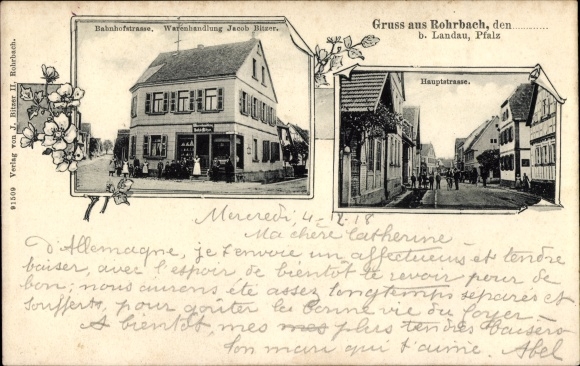 Bahnhofstrasse. Warenhandlung Jacob Bitzer.
Gruss aus Rohrbach, den
b. Landau, Pfalz
Hauptstrasse.
91509 Verlag von J. Bitzer II, Rohrbach.
Mercredi 4-12-18
Ma chère Catherine -
D'Allemagne, je t'envoie un affectueux et tendre
baiser, avec l'espoir de bientôt te revoir pour de
bon; nous aurons été assez longtemps séparés et
soufferts, pour goûter la bonne vie du foyer -
A bientôt, mes mes plus tendres baisers
Ton mari qui t'aime. Abel